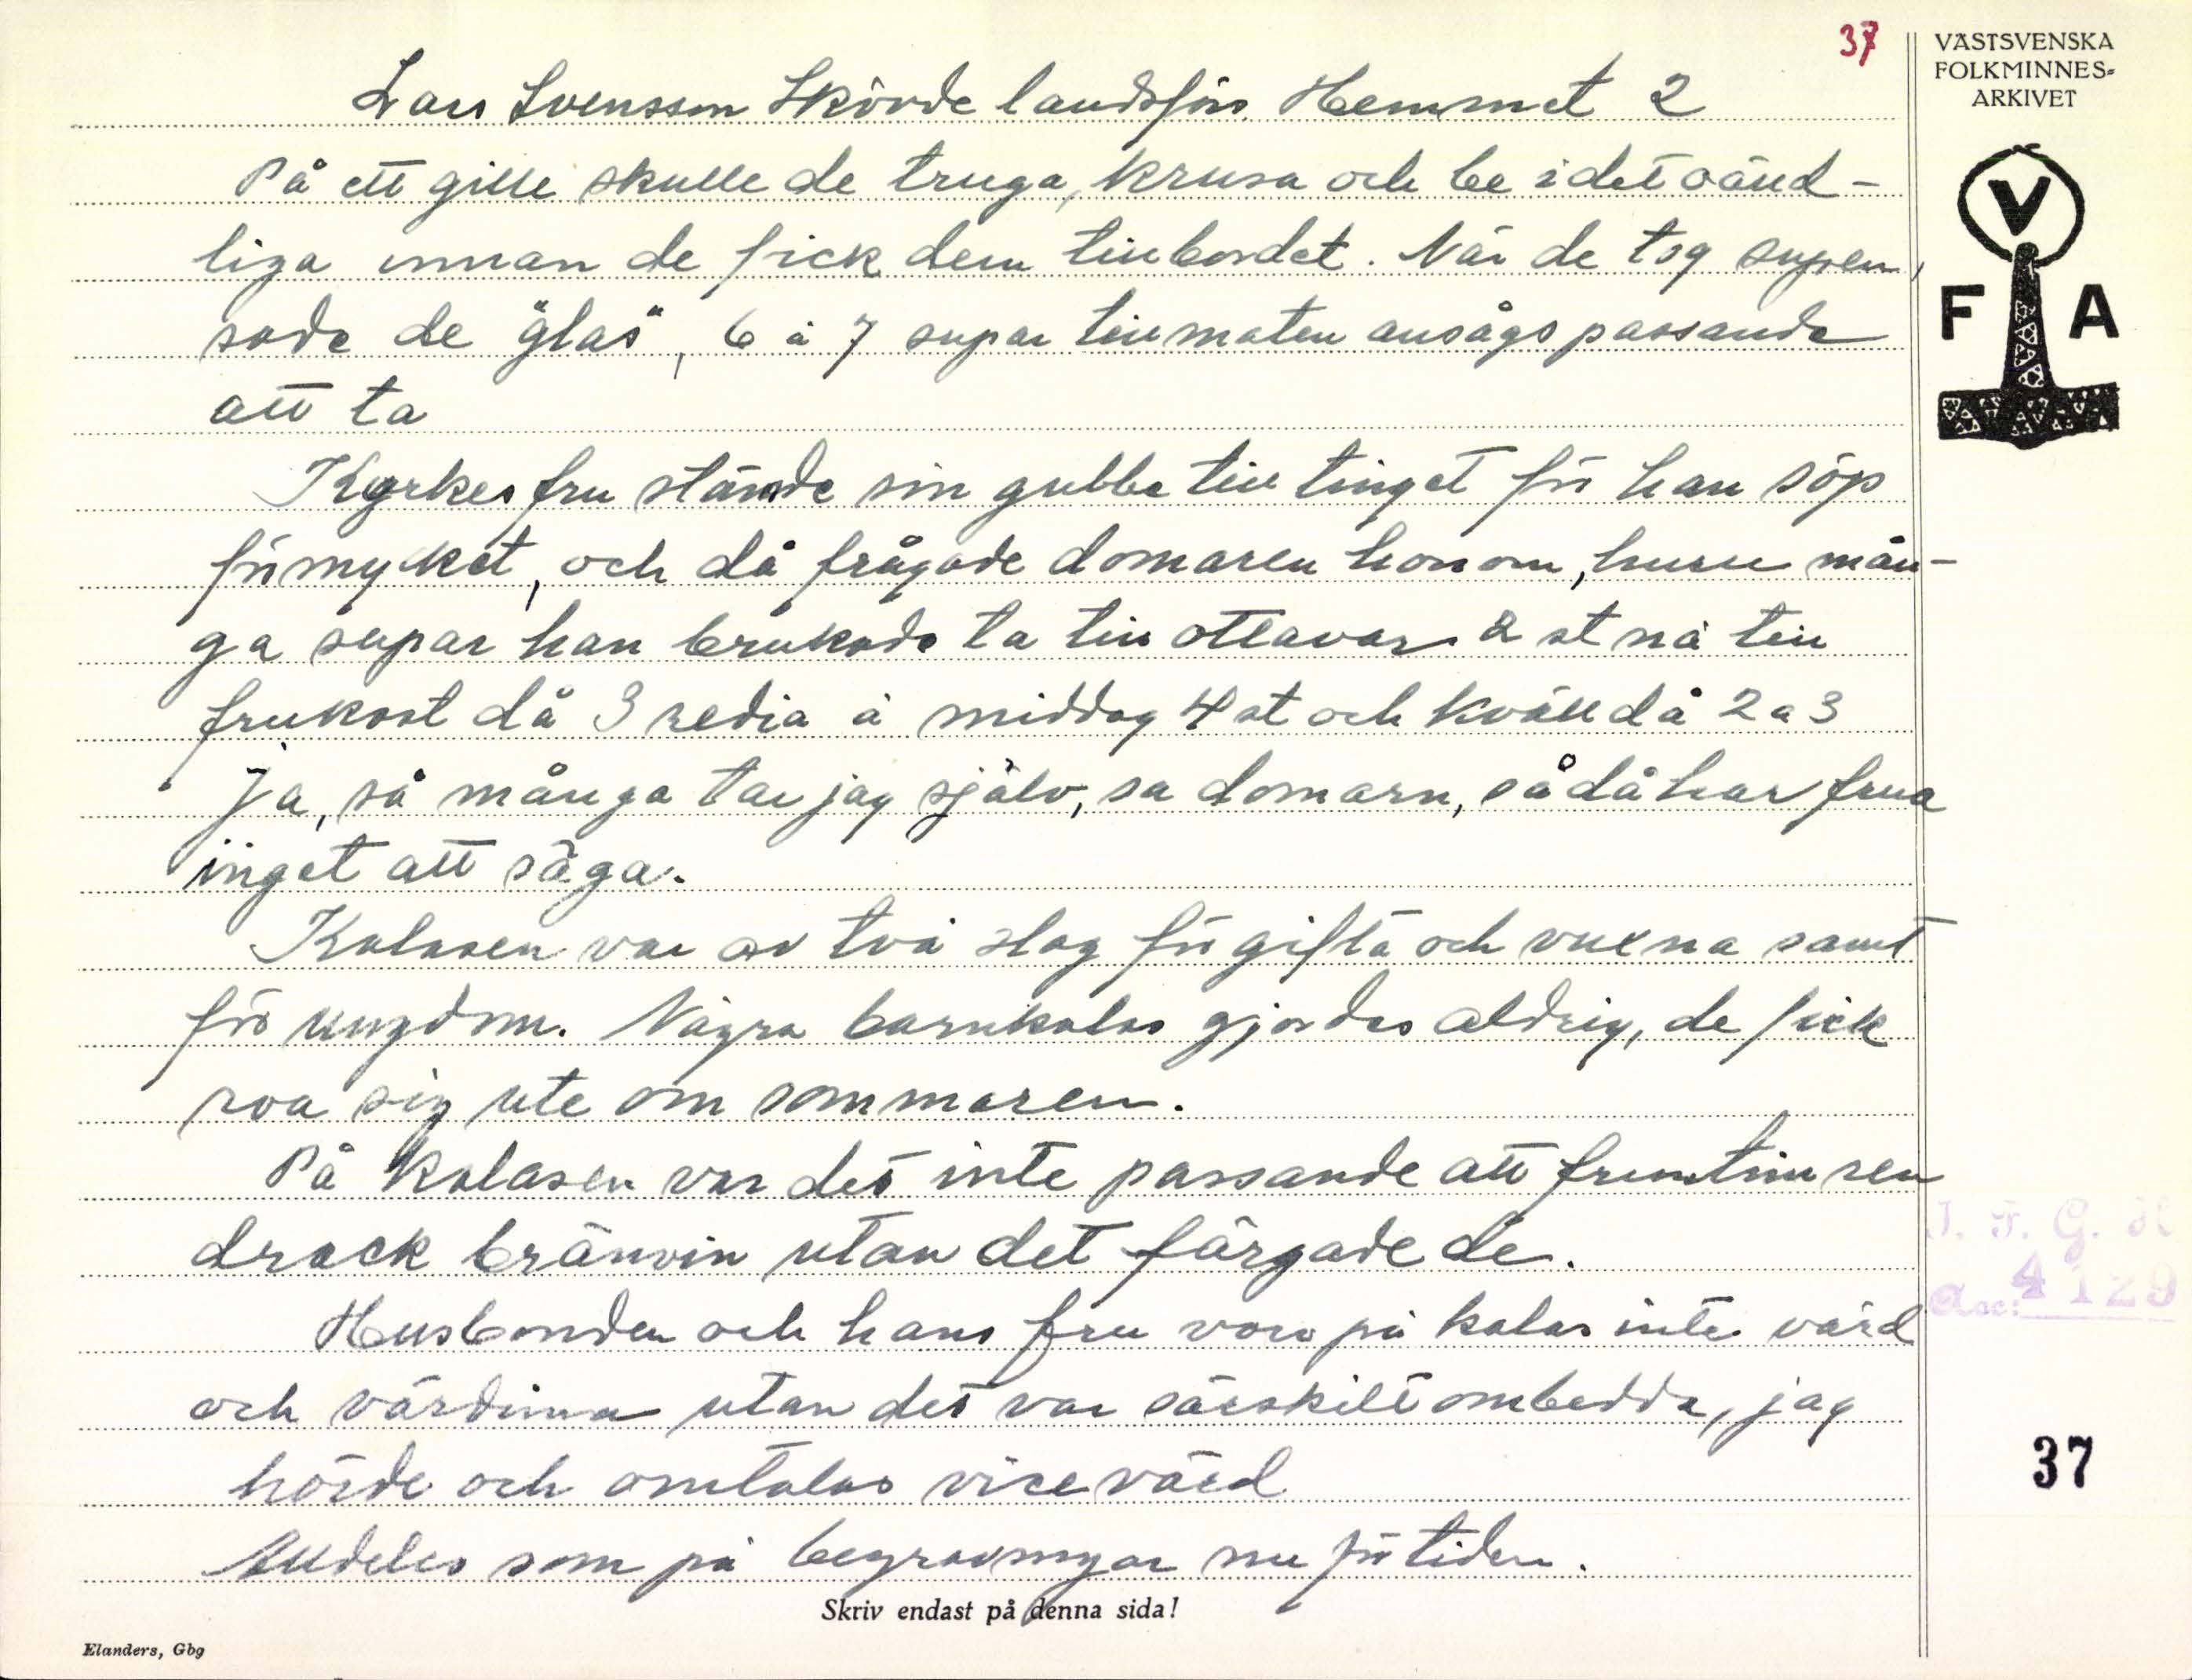 37
VÄSTSVENSKA
FOLKMINNES-
ARKIVET
V
F A
Lars Svensson Skövde landsförs. Hemmet 2
På ett gille skulle de truga, krusa och be i det oänd-
liga innan de fick dem till bordet. När de tog supen,
sade de "glas", 6 à 7 supar till maten ansågs passande
att ta
Kyrkes fru stämde sin gubbe till tinget för han söp
för mycket, och då frågade domaren honom, huru mån-
ga supar han brukade ta till ottavar. 2 st nå till
frukost då 3 redia å middag 4 st och kväll då 2 a 3
Ja, så många tar jag själv, sa domarn, så då har frua
inget att säga.
Kalasen var av två slag för gifta och vuxna samt
för ungdom. Några barnkalas gjordes aldrig, de fick
roa sig ute om sommaren.
På kalasen var det inte passande att fruntimren
drack bränvin utan det färgade de.
Husbonden och hans fru voro på kalas inte värd
och värdinna utan det var särskilt ombedda, jag
hörde och omtalas vice värd
Alldeles som på begravningar nu för tiden.
I. F. G. H
Acc: 4129
37
Skriv endast på denna sida!
Elanders, Gbg